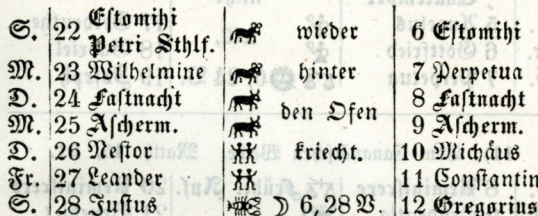 S. 22 Eſtomihi wieder 6 Eſtomihi
Petri Sthlf.
M. 23 Wilhelmine hinter 7 Perpetua
D. 24 Faſtnacht den Ofen 8 Faſtnacht
M. 25 Aſcherm. 9 Aſcherm.
D. 26 Neſtor kriecht. 10 Michäus
Fr. 27 Leander 11 Conſtantin
S. 28 Juſtus ☽ 6, 28 V. 12 Gregorius